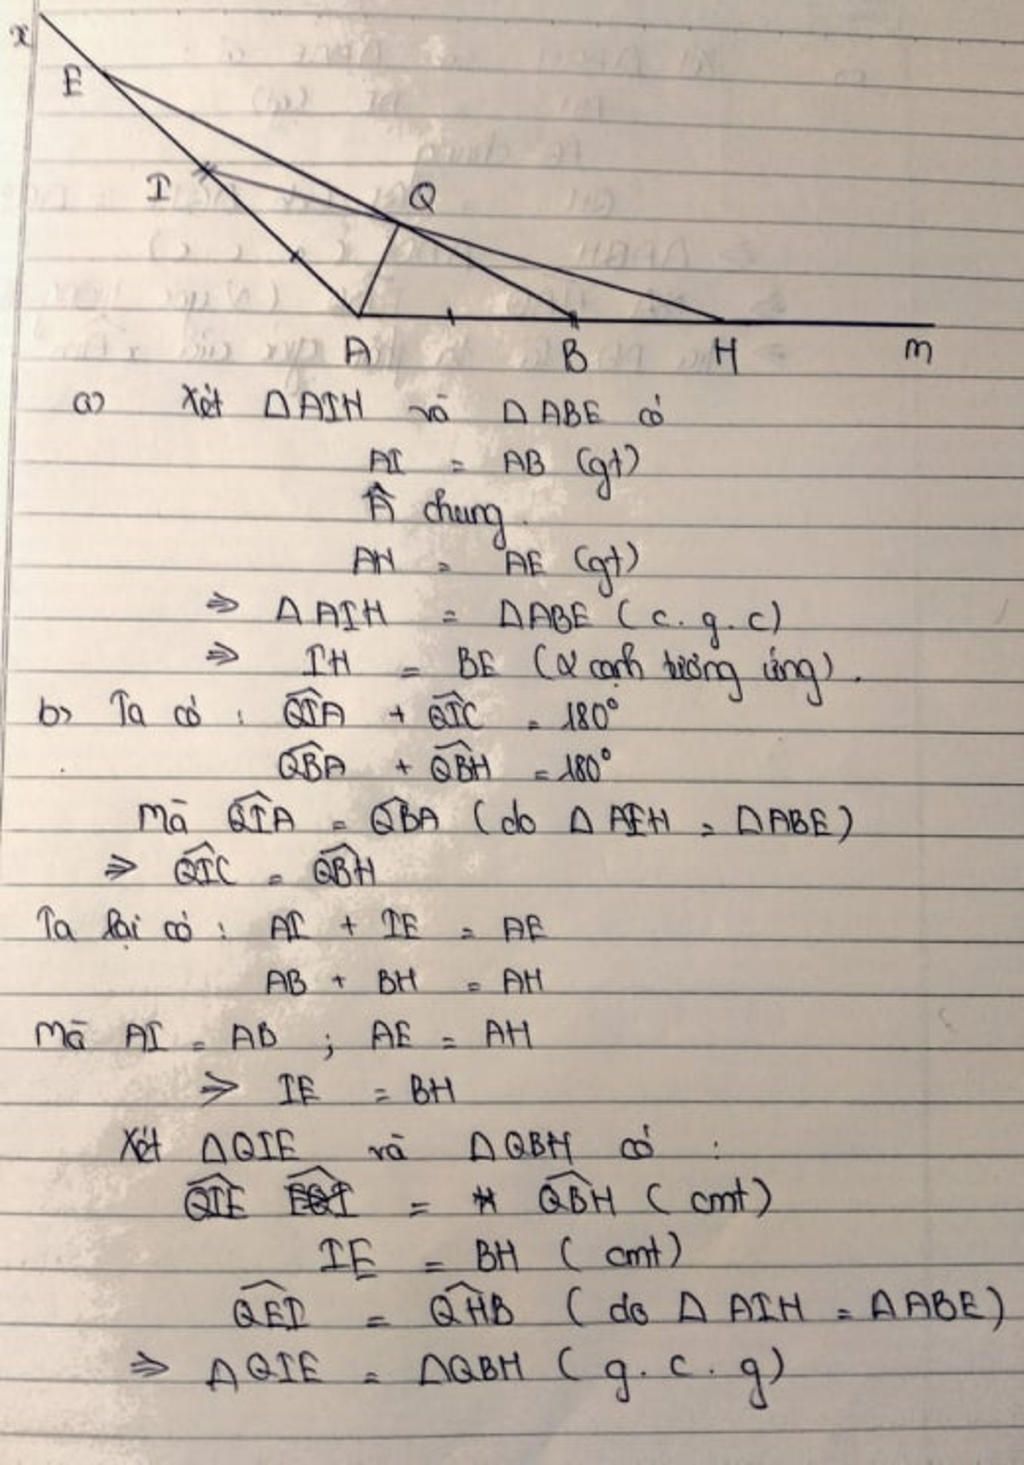 x
E
I
Q
A
B
H
m
a) Xét ΔAIH và ΔABE có
AI = AB (gt)
Â chung.
AH = AE (gt)
⇒ ΔAIH = ΔABE (c.g.c)
⇒ IH = BE (2 cạnh tương ứng).
b) Ta có: \widehat{QIA} + \widehat{QIC} = 180°
\widehat{QBA} + \widehat{QBH} = 180°
Mà \widehat{QIA} = \widehat{QBA} (do ΔAIH = ΔABE)
⇒ \widehat{QIC} = \widehat{QBH}
Ta lại có: AI + IE = AE
AB + BH = AH
Mà AI = AB ; AE = AH
⇒ IE = BH
Xét ΔQIE và ΔQBH có :
\widehat{QIE} = \widehat{QBH} (cmt)
IE = BH (cmt)
\widehat{QEI} = \widehat{QHB} (do ΔAIH = ΔABE)
⇒ ΔQIE = ΔQBH (g.c.g)